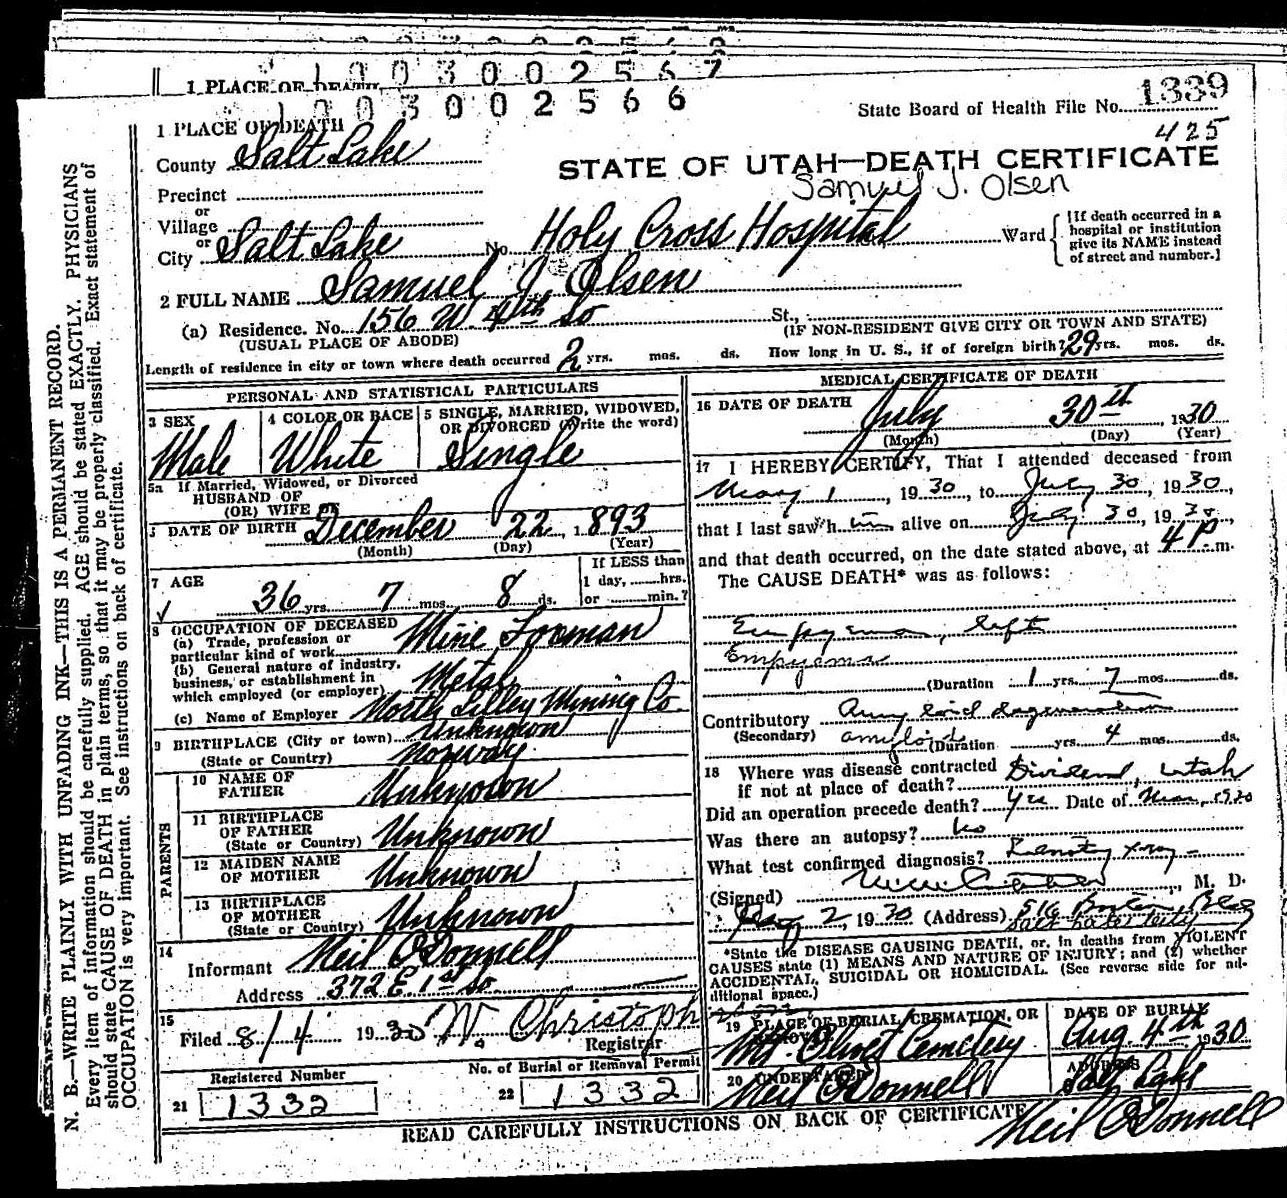 1003002567
1 PLACE OF DEATH
1003002566
State Board of Health File No. 1339
425
1 PLACE OF DEATH
County Salt Lake
STATE OF UTAH—DEATH CERTIFICATE
Samuel J. Olsen
Precinct
or
Village
or
City Salt Lake No. Holy Cross Hospital Ward
[If death occurred in a hospital or institution give its NAME instead of street and number.]
2 FULL NAME Samuel J. Olsen
(a) Residence. No. 156 W. 4th So St.,
(USUAL PLACE OF ABODE) (IF NON-RESIDENT GIVE CITY OR TOWN AND STATE)
Length of residence in city or town where death occurred 2 yrs. mos. ds. How long in U. S., if of foreign birth? 29 yrs. mos. ds.
PERSONAL AND STATISTICAL PARTICULARS
3 SEX Male
4 COLOR OR RACE White
5 SINGLE, MARRIED, WIDOWED, OR DIVORCED (Write the word) Single
5a If Married, Widowed, or Divorced
HUSBAND OF
(OR) WIFE OF
DATE OF BIRTH December 22, 1893
(Month) (Day) (Year)
7 AGE 36 yrs. 7 mos. 8 ds.
If LESS than 1 day, hrs. or min.?
8 OCCUPATION OF DECEASED
(a) Trade, profession or particular kind of work Mine Foreman
(b) General nature of industry, business, or establishment in which employed (or employer) Metal
(c) Name of Employer North Lilley Mining Co.
9 BIRTHPLACE (City or town) Unknown
(State or Country) Norway
PARENTS
10 NAME OF FATHER Unknown
11 BIRTHPLACE OF FATHER (State or Country) Unknown
12 MAIDEN NAME OF MOTHER Unknown
13 BIRTHPLACE OF MOTHER (State or Country) Unknown
14 Informant Neil O'Donnell
Address 372 E. 1st So
15 Filed 8/4 1930 W. Christoph
Registrar
Registered Number
21 1332
No. of Burial or Removal Permit
22 1332
MEDICAL CERTIFICATE OF DEATH
16 DATE OF DEATH July 30th, 1930
(Month) (Day) (Year)
17 I HEREBY CERTIFY, That I attended deceased from
May 1, 1930, to July 30, 1930,
that I last saw him alive on July 30, 1930,
and that death occurred, on the date stated above, at 4 P m.
The CAUSE DEATH* was as follows:
Empyema, left
Empyema
(Duration 1 yrs. 7 mos. ds.
Contributory Amyloid degeneration
(Secondary) amyloid (Duration yrs. 4 mos. ds.
18 Where was disease contracted if not at place of death? Dividend, Utah
Did an operation precede death? Yes Date of Mar, 1930
Was there an autopsy? No
What test confirmed diagnosis? x-ray
(Signed) , M. D.
Aug 2, 1930 (Address) 516 Boston Bldg
Salt Lake City
*State the DISEASE CAUSING DEATH, or, in deaths from VIOLENT
CAUSES state (1) MEANS AND NATURE OF INJURY; and (2) whether
ACCIDENTAL, SUICIDAL OR HOMICIDAL. (See reverse side for additional space.)
19 PLACE OF BURIAL, CREMATION, OR REMOVAL Mt. Olivet Cemetery
DATE OF BURIAL Aug. 4th 1930
20 UNDERTAKER Neil O'Donnell
ADDRESS Salt Lake
READ CAREFULLY INSTRUCTIONS ON BACK OF CERTIFICATE
Neil O'Donnell
N. B.—WRITE PLAINLY WITH UNFADING INK—THIS IS A PERMANENT RECORD.
Every item of information should be carefully supplied. AGE should be stated EXACTLY. PHYSICIANS
should state CAUSE OF DEATH in plain terms, so that it may be properly classified. Exact statement of
OCCUPATION is very important. See instructions on back of certificate.